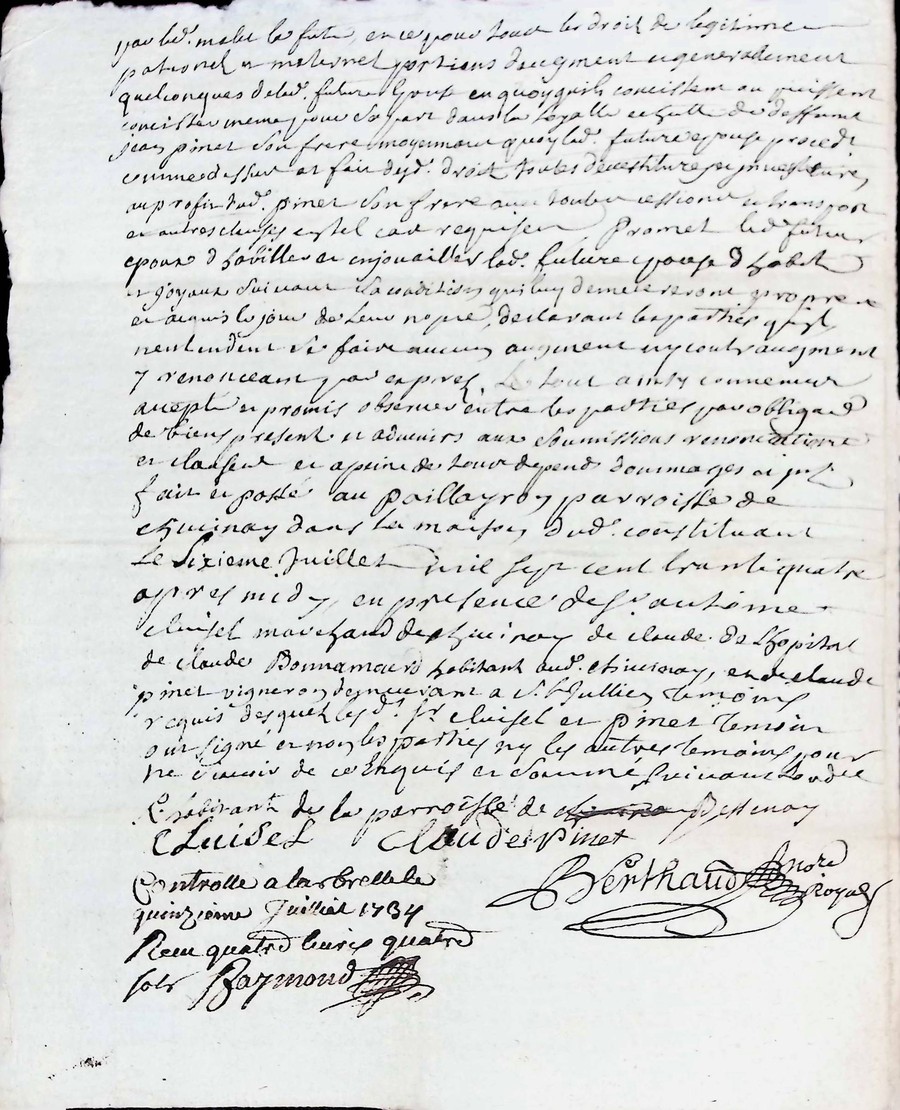 par led. malet le fute, en ce pour tout les droit de legitime
paternel et maternel portions daugment et generallement
quelconques de lad. future Epouse en quoy quils concistent ou puissent
concister meme pour sa part dans la de deffunt
jean pinet son frere moyennant quoy lad. future epouse procede
comme dessus et fait desd. droit toutes devestiture et investiture,
au profit dud. pinet son frere avec toutes cessions et transport
et autres clauses en tel cas requises Promet led. futur
epoux d habiller et enjouailler lad. future epouse d habit
et joyaux suivant sa condition qui luy demeureront propre
et acquis le jour de leur nopce, declarant les parties qu'ils
nentendent se faire aucun augment ny contraugment
y renonceant par exprès. Le tout ainsy conveneu
accepté et promis observer entre les parties par obligaõ
de biens present et advenirs aux soumissions renonciations
et clauses et a peine de tous depends dommages
fait et passé au paillayron parroisse de
chevinay dans la maison dud. constituant
Le Sixieme Juillet mil sept cent trante quatre
apres midy, en presence de sr. antoine
Cluisel marchand de chevinay de claude de Lhopital
de claude Bonnamour habitant aud. chevinay, et de claude
pinet vigneron demeurant a St. Jullien Temoins
requis desquels les dt. sr. cluisel et pinet temoin
ont signé et non les parties ny les autres temoins pour
ne scavoir de ce Enquis et sommé suivant Lordce
L. habitant de la parroisse de Bessenay
CLuiseL Claudes Pinet
Controllé a larbrelle le
Berthaud nore Royal
quinzieme Juillet 1734
Receu quatre livres quatre
sols Raymond